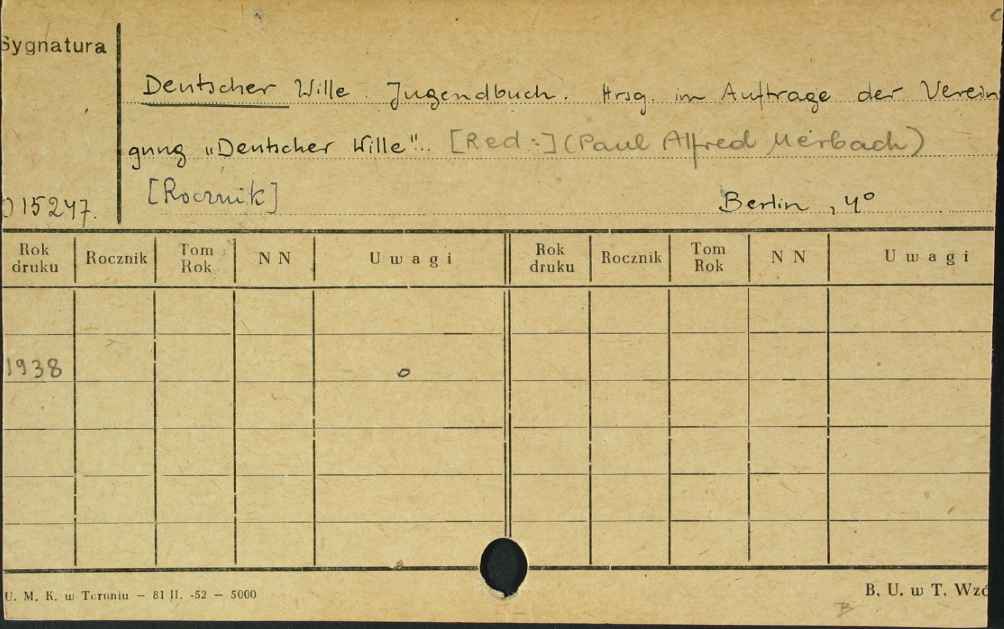 Sygnatura
Deutscher Wille. Jugendbuch. Hrsg. im Auftrage der Verein
gung „Deutscher Wille“. [Red.:] (Paul Alfred Merbach)
[Rocznik]
015247.
Berlin, 4°
Rok druku Rocznik Tom Rok N N Uwagi Rok druku Rocznik Tom Rok N N Uwagi
1938 o
U. M. K. w Toruniu – 81 II. -52 – 5000
B. U. w T. Wzó